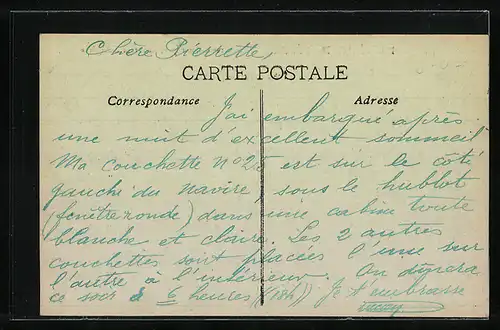 Chère Pierrette,
CARTE POSTALE
Correspondance
Adresse
J'ai embarqué après
une nuit d'excellent sommeil
Ma couchette n° 25 est sur le côté
gauche du navire, sous le hublot
(fenêtre ronde) dans une cabine toute
blanche et claire. Les 2 autres
couchettes sont placées l'une sur
l'autre à l'intérieur. On
ce soir à 6 heures (18h)) Je t'embrasse